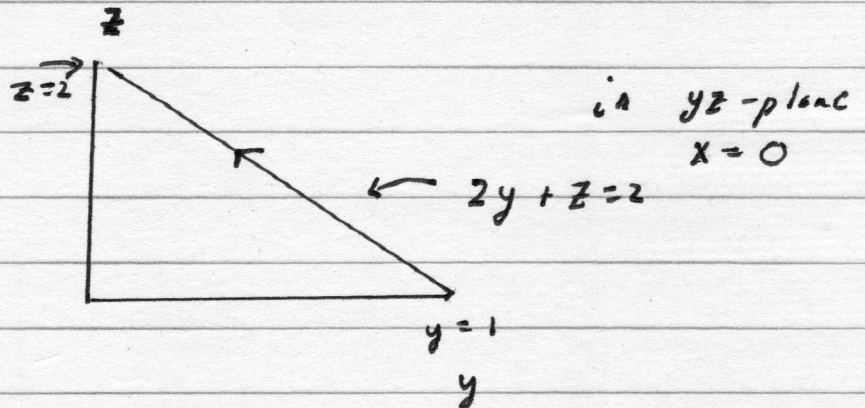 z
z=2
in yz-plane
x = 0
2y + z = 2
y = 1
y